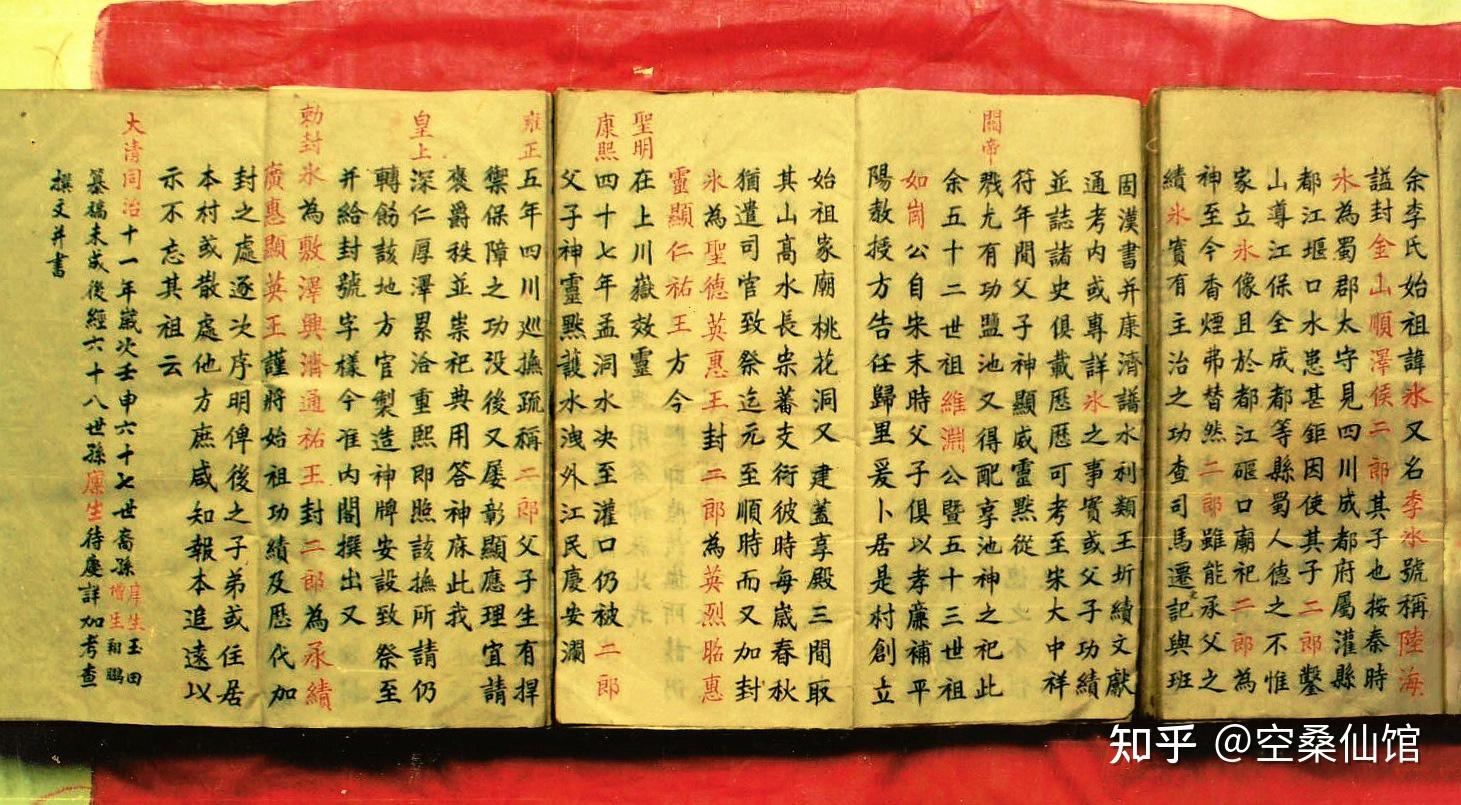 余李氏始祖諱冰又名李冰號稱陸海
謚封金山順澤侯二郎其子也按秦時
氷為蜀郡太守見四川成都府屬灌縣
都江堰口水患甚鉅因使其子二郎鑿
山導江保全成都等縣蜀人德之不惟
家立氷像且於都江堰口廟祀二郎為
神至今香煙弗替然二郎雖能承父之
績氷實有主治之功查司馬遷記與班
固漢書并康濟譜水利類王圻續文獻
通考內或專詳氷之事實或父子功績
並誌諸史俱載歷歷可考至宋大中祥
符年間父子神顯威靈默從
關帝
戮尤有功鹽池又得配享池神之祀此
余五十二世祖維淵公暨五十三世祖
如崗公自宋末時父子俱以孝廉補平
陽教授方告任歸里爰卜居是村創立
始祖家廟桃花洞又建蓋享殿三間取
其山高水長宗蕃支衍彼時每歲春秋
猶遣司官致祭迄元至順時而又加封
氷為聖德英惠王封二郎為英烈昭惠
靈顯仁祐王方今
聖明在上川嶽效靈
康熙四十七年孟洞水决至灌口仍被二郎
父子神靈默護水洩外江民慶安瀾
雍正五年四川巡撫疏稱二郎父子生有捍
禦保障之功没後又屡彰顯應理宜請
褒爵秩並崇祀典用答神庥此我
皇上深仁厚澤累洽重熙即照該撫所請仍
轉飭該地方官製造神牌安設致祭至
并給封號字樣今准内閣撰出又
勅封氷為敷澤興濟通祐王封二郎為承績
廣惠顯英王謹將始祖功績及歷代加
封之處逐次序明俾後之子弟或住居
本村或散處他方庶咸知報本追遠以
示不忘其祖云
大清同治十一年歲次壬申六十七世裔孫庠生玉田 增生翔鵬
纂稿未成後經六十八世孫廩生待慶詳加考查
撰文并書
知乎 @空桑仙馆